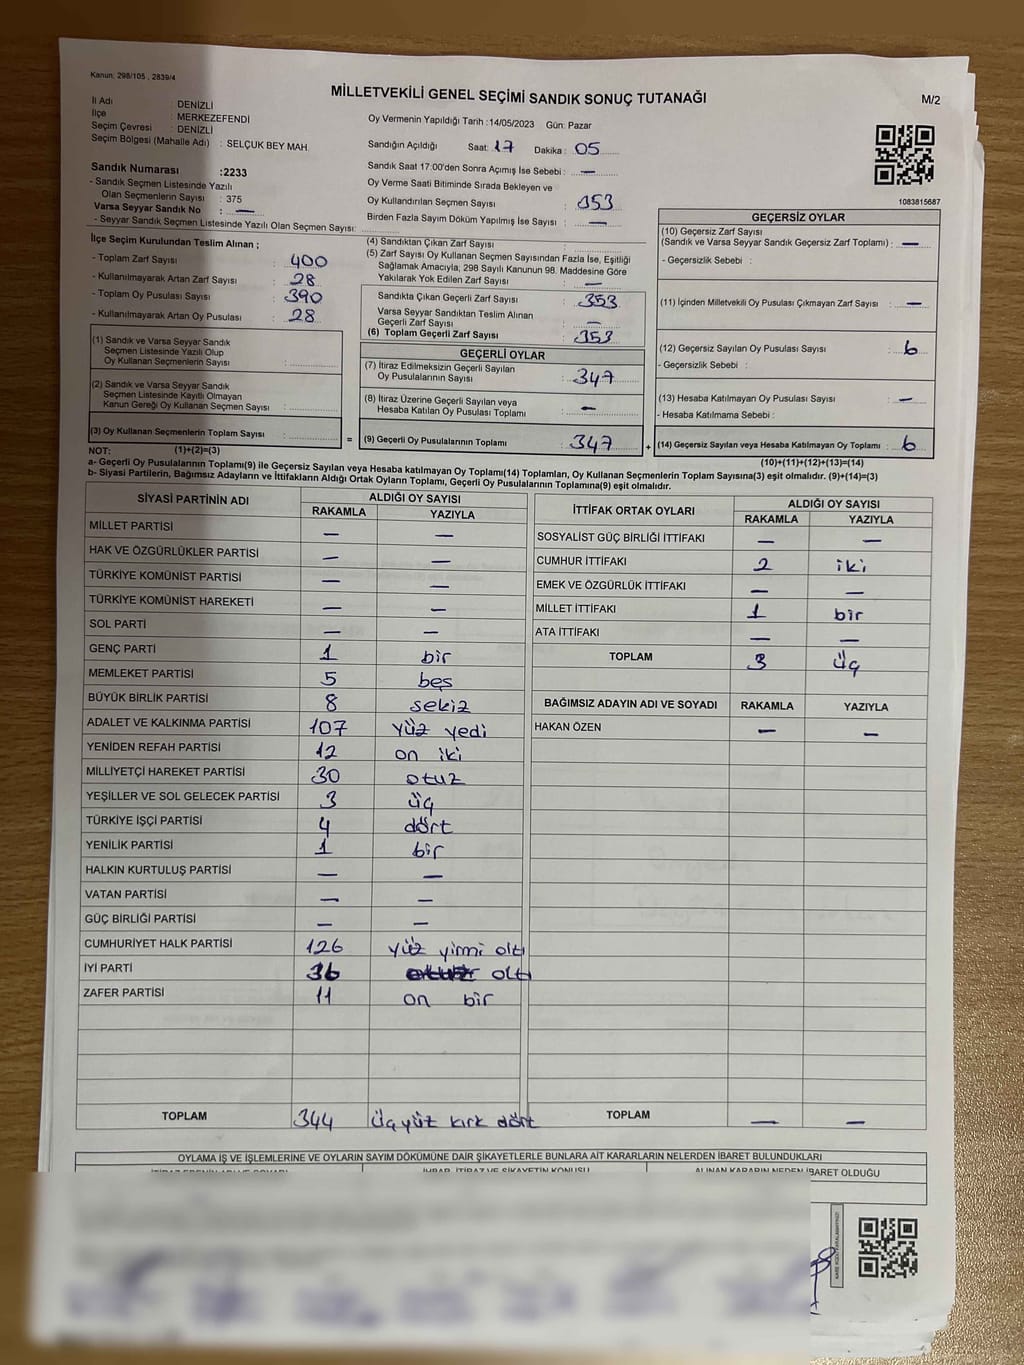 Kanun: 298/105 , 2839/4
MİLLETVEKİLİ GENEL SEÇİMİ SANDIK SONUÇ TUTANAĞI
M/2
İl Adı : DENİZLİ
İlçe : MERKEZEFENDİ
Seçim Çevresi : DENİZLİ
Seçim Bölgesi (Mahalle Adı) : SELÇUK BEY MAH.
Oy Vermenin Yapıldığı Tarih :14/05/2023 Gün: Pazar
Sandığın Açıldığı Saat: 17 Dakika : 05
Sandık Saat 17:00'den Sonra Açımış İse Sebebi : —
Oy Verme Saati Bitiminde Sırada Bekleyen ve
Oy Kullandırılan Seçmen Sayısı : 353
Birden Fazla Sayım Döküm Yapılmış İse Sayısı : —
1083815687
Sandık Numarası :2233
- Sandık Seçmen Listesinde Yazılı
Olan Seçmenlerin Sayısı : 375
Varsa Seyyar Sandık No : —
- Seyyar Sandık Seçmen Listesinde Yazılı Olan Seçmen Sayısı:
İlçe Seçim Kurulundan Teslim Alınan ;
- Toplam Zarf Sayısı : 400
- Kullanılmayarak Artan Zarf Sayısı : 28
- Toplam Oy Pusulası Sayısı : 390
- Kullanılmayarak Artan Oy Pusulası : 28
(1) Sandık ve Varsa Seyyar Sandık
Seçmen Listesinde Yazılı Olup
Oy Kullanan Seçmenlerin Sayısı :
(2) Sandık ve Varsa Seyyar Sandık
Seçmen Listesinde Kayıtlı Olmayan
Kanun Gereği Oy Kullanan Seçmen Sayısı :
(3) Oy Kullanan Seçmenlerin Toplam Sayısı :
(1)+(2)=(3)
(4) Sandıktan Çıkan Zarf Sayısı :
(5) Zarf Sayısı Oy Kullanan Seçmen Sayısından Fazla İse, Eşitliği
Sağlamak Amacıyla; 298 Sayılı Kanunun 98. Maddesine Göre
Yakılarak Yok Edilen Zarf Sayısı : —
Sandıkta Çıkan Geçerli Zarf Sayısı : 353
Varsa Seyyar Sandıktan Teslim Alınan
Geçerli Zarf Sayısı : —
(6) Toplam Geçerli Zarf Sayısı : 353
GEÇERLİ OYLAR
(7) İtiraz Edilmeksizin Geçerli Sayılan
Oy Pusulalarının Sayısı : 347
(8) İtiraz Üzerine Geçerli Sayılan veya
Hesaba Katılan Oy Pusulası Toplamı : —
= (9) Geçerli Oy Pusulalarının Toplamı : 347 +
GEÇERSİZ OYLAR
(10) Geçersiz Zarf Sayısı
(Sandık ve Varsa Seyyar Sandık Geçersiz Zarf Toplamı) : —
- Geçersizlik Sebebi :
(11) İçinden Milletvekili Oy Pusulası Çıkmayan Zarf Sayısı : —
(12) Geçersiz Sayılan Oy Pusulası Sayısı : 6
- Geçersizlik Sebebi :
(13) Hesaba Katılmayan Oy Pusulası Sayısı : —
- Hesaba Katılmama Sebebi :
(14) Geçersiz Sayılan veya Hesaba Katılmayan Oy Toplamı : 6
(10)+(11)+(12)+(13)=(14)
NOT:
a- Geçerli Oy Pusulalarının Toplamı(9) ile Geçersiz Sayılan veya Hesaba katılmayan Oy Toplamı(14) Toplamları, Oy Kullanan Seçmenlerin Toplam Sayısına(3) eşit olmalıdır. (9)+(14)=(3)
b- Siyasi Partilerin, Bağımsız Adayların ve İttifakların Aldığı Ortak Oyların Toplamı, Geçerli Oy Pusulalarının Toplamına(9) eşit olmalıdır.
SİYASİ PARTİNİN ADI ALDIĞI OY SAYISI
RAKAMLA YAZIYLA
MİLLET PARTİSİ — —
HAK VE ÖZGÜRLÜKLER PARTİSİ — —
TÜRKİYE KOMÜNİST PARTİSİ — —
TÜRKİYE KOMÜNİST HAREKETİ — —
SOL PARTİ — —
GENÇ PARTİ 1 bir
MEMLEKET PARTİSİ 5 beş
BÜYÜK BİRLİK PARTİSİ 8 sekiz
ADALET VE KALKINMA PARTİSİ 107 yüz yedi
YENİDEN REFAH PARTİSİ 12 on iki
MİLLİYETÇİ HAREKET PARTİSİ 30 otuz
YEŞİLLER VE SOL GELECEK PARTİSİ 3 üç
TÜRKİYE İŞÇİ PARTİSİ 4 dört
YENİLİK PARTİSİ 1 bir
HALKIN KURTULUŞ PARTİSİ — —
VATAN PARTİSİ — —
GÜÇ BİRLİĞİ PARTİSİ — —
CUMHURİYET HALK PARTİSİ 126 yüz yirmi altı
İYİ PARTİ 36 otuz altı
ZAFER PARTİSİ 11 on bir
TOPLAM 344 üçyüz kırk dört
İTTİFAK ORTAK OYLARI ALDIĞI OY SAYISI
RAKAMLA YAZIYLA
SOSYALİST GÜÇ BİRLİĞİ İTTİFAKI — —
CUMHUR İTTİFAKI 2 iki
EMEK VE ÖZGÜRLÜK İTTİFAKI — —
MİLLET İTTİFAKI 1 bir
ATA İTTİFAKI — —
TOPLAM 3 üç
BAĞIMSIZ ADAYIN ADI VE SOYADI RAKAMLA YAZIYLA
HAKAN ÖZEN — —
TOPLAM — —
OYLAMA İŞ VE İŞLEMLERİNE VE OYLARIN SAYIM DÖKÜMÜNE DAİR ŞİKAYETLERLE BUNLARA AİT KARARLARIN NELERDEN İBARET BULUNDUKLARI
İHBAR, İTİRAZ VE ŞİKAYETİN KONUSU ALINAN KARARIN NEDEN İBARET OLDUĞU